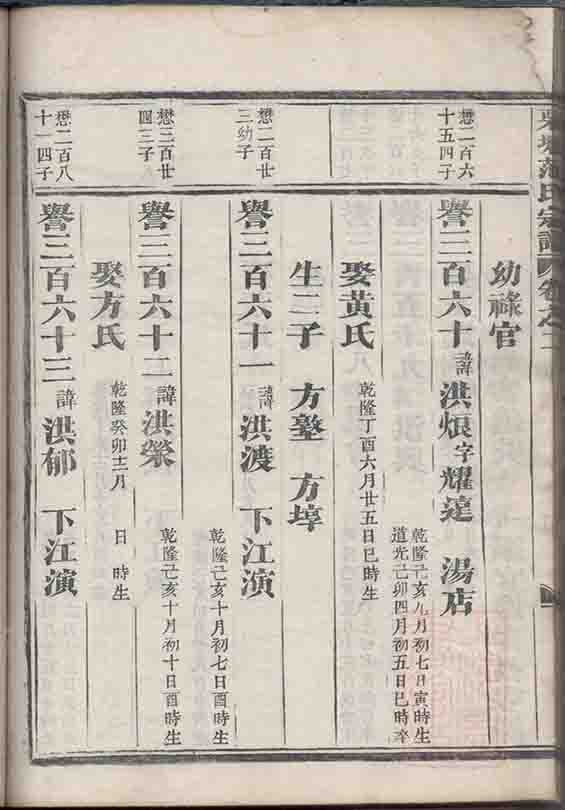 范氏宗譜 卷之二
幼祿官
懋二百六十五四子
譽三百六十 諱洪烺字耀達 湯店
乾隆乙亥九月初七日寅時生
道光己卯四月初五日巳時卒
娶黃氏 乾隆丁酉六月廿五日巳時生
生二子 方臺 方埻
懋二百廿三幼子
譽三百六十一 諱洪渡 下江演
乾隆己亥十月初七日酉時生
懋三百廿四三子
譽三百六十二 諱洪榮
乾隆己亥十月初十日酉時生
娶方氏 乾隆癸卯十二月 日 時生
懋二百八十一四子
譽三百六十三 諱洪郁 下江演